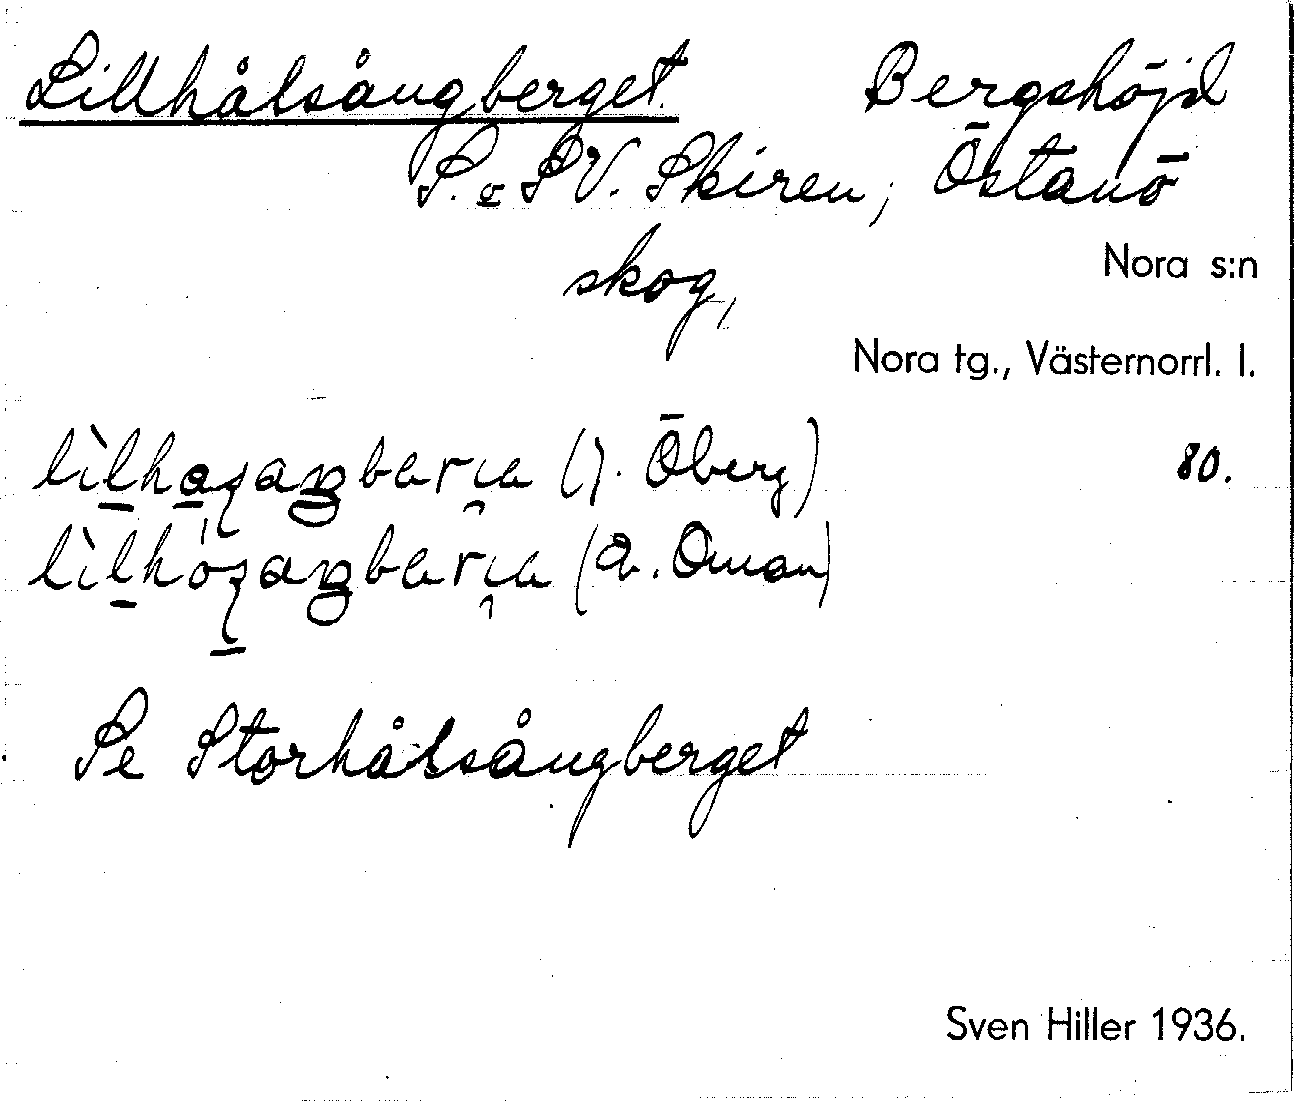 Lillhålsångberget. Bergshöjd
S. o SV. Skiren, Östanö
skog,
Nora s:n
Nora tg., Västernorrl. l.
(J. Öberg) 80.
(A. Öman)
Se Storhålsångberget
Sven Hiller 1936.